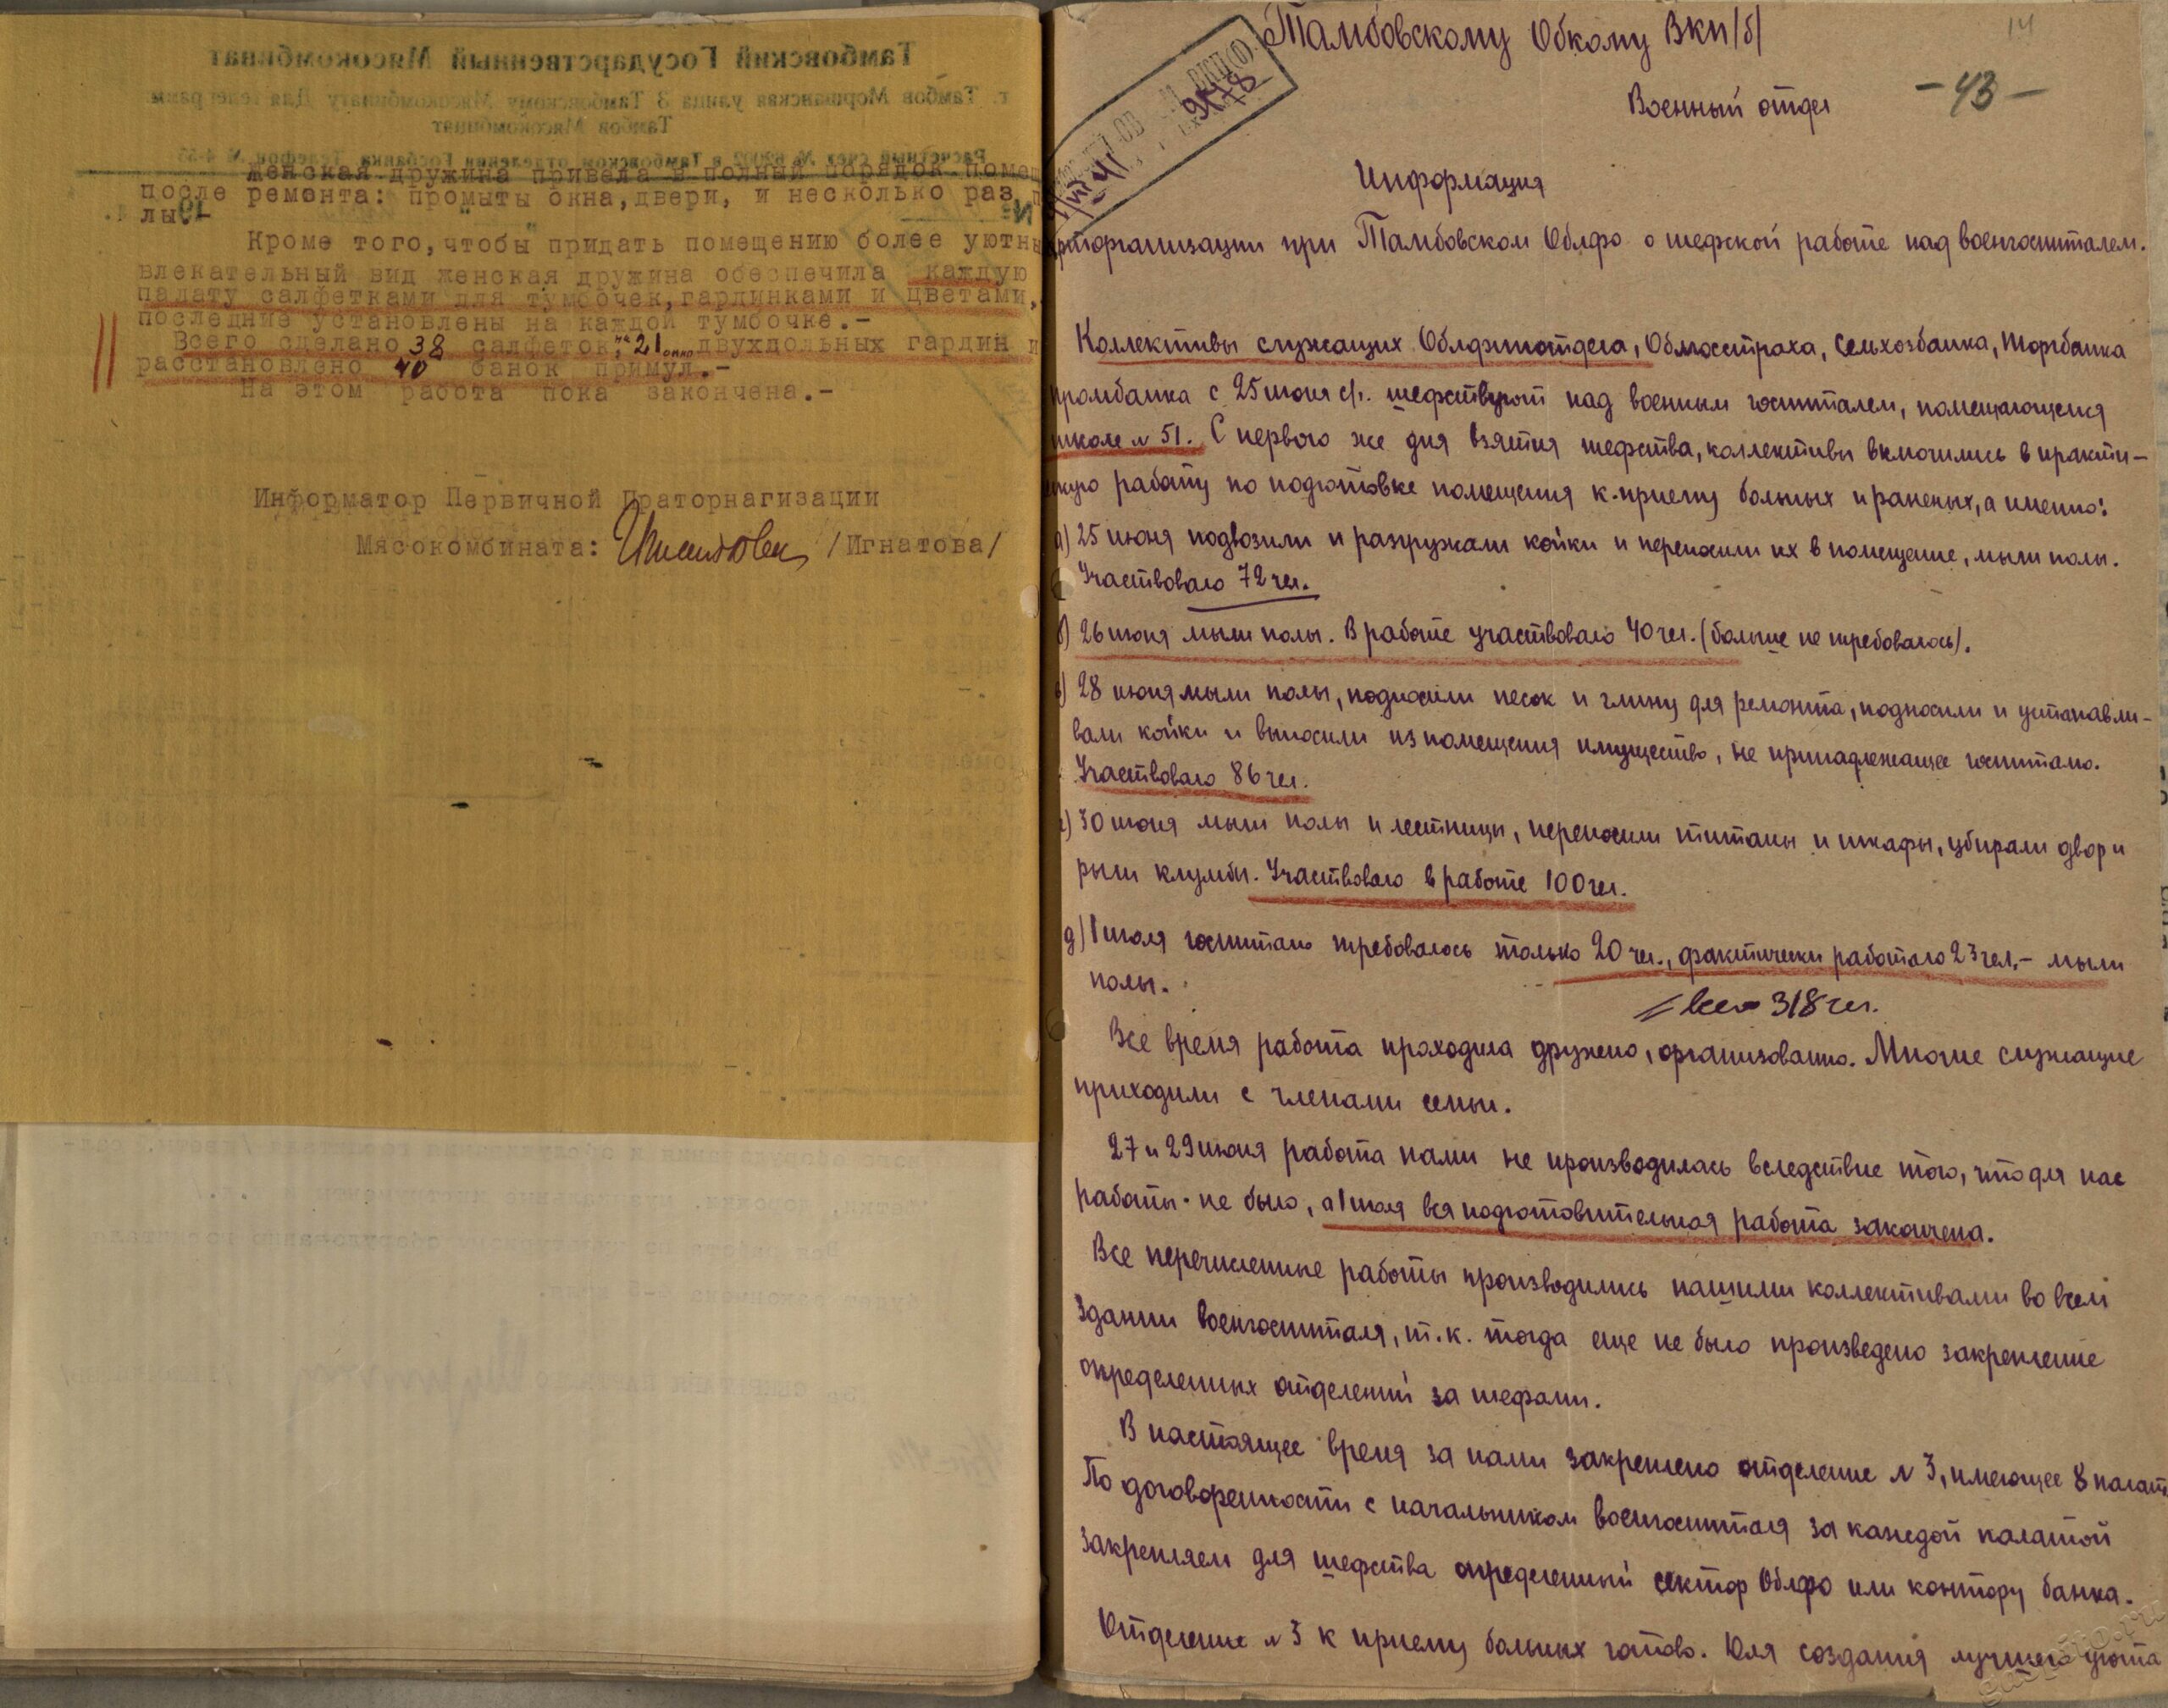 Тамбовский Государственный Мясокомбинат
г. Тамбов Моршанская улица 3 Тамбовскому Мясокомбинату Для телеграмм
Тамбов Мясокомбинат
женская дружина привела в полный порядок помещ
после ремонта: промыты окна, двери, и несколько раз п
лы.-
Кроме того, чтобы придать помещению более уютн
влекательный вид женская дружина обеспечила каждую
палату салфетками для тумбочек, гардинками и цветами,
последние установлены на каждой тумбочке.-
Всего сделано 38 салфеток, на 21 окно двухдольных гардин и
расстановлено 40 банок примул.-
На этом работа пока закончена.-
Информатор Первичной Праторнагизации
Мясокомбината: /Игнатова/
14
Тамбовскому Обкому ВКП/б/
Военный отдел
-43-
Информация
парторганизации при Тамбовском Облфо о шефской работе над военгоспиталем.
Коллективы служащих Облфинотдела, Облгосстраха, Сельхозбанка, Торгбанка
промбанка с 25 июня с/г. шефствуют над военным госпиталем, помещающемся
школе № 51. С первого же дня взятия шефства, коллективы включились в практи-
ческую работу по подготовке помещения к приему больных и раненых, а именно:
а) 25 июня подвозили и разгружали койки и переносили их в помещение, мыли полы.
Участвовало 72 чел.
б) 26 июня мыли полы. В работе участвовало 40 чел. (больше не требовалось).
в) 28 июня мыли полы, подносили песок и глину для ремонта, подносили и устанавли-
вали койки и выносили из помещения имущество, не принадлежащее госпиталю.
Участвовало 86 чел.
г) 30 июня мыли полы и лестницы, переносили титаны и шкафы, убирали двор и
рыли клумбы. Участвовало в работе 100 чел.
д) 1 июля госпиталю требовалось только 20 чел., фактически работало 23 чел.- мыли
полы.
всего 318 чел.
Все время работа проходила дружно, организованно. Многие служащие
приходили с членами семьи.
27 и 29 июня работа нами не производилась вследствие того, что для нас
работы не было, а 1 июля вся подготовительная работа закончена.
Все перечисленные работы производились нашими коллективами во всем
здании военгоспиталя, т.к. тогда еще не было произведено закрепление
определенных отделений за шефами.
В настоящее время за нами закреплено отделение № 3, имеющее 8 палат
По договоренности с начальником военгоспиталя за каждой палатой
закрепляем для шефства определенный сектор Облфо или контору банка.
Отделение № 3 к приему больных готово. Для создания лучшего уюта